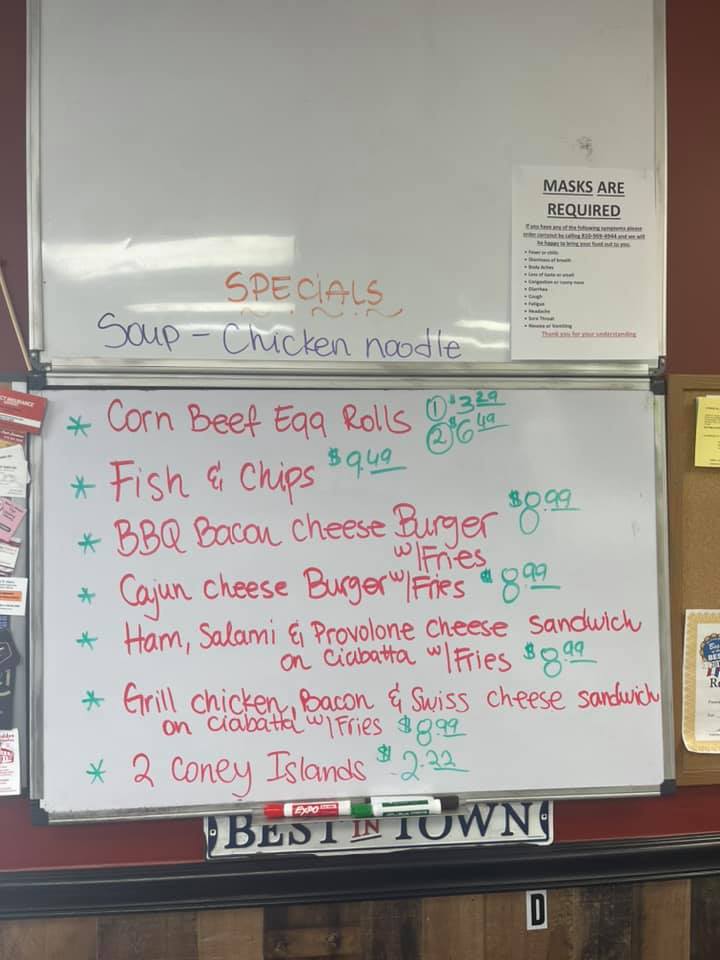 MASKS ARE
REQUIRED
If you have any of the following symptoms please
order carryout by calling 810-969-4944 and we will
be happy to bring your food out to you.
• Fever or chills
• Shortness of breath
• Body Aches
• Loss of taste or smell
• Congestion or runny nose
• Diarrhea
• Cough
• Fatigue
• Headache
• Sore Throat
• Nausea or Vomiting
Thank you for your understanding
SPECiALS
Soup - Chicken noodle
* Corn Beef Egg Rolls ① $3.29
② $6.49
* Fish & Chips $9.49
* BBQ Bacon Cheese Burger $8.99
w/Fries
* Cajun cheese Burger w/Fries $8.99
* Ham, Salami & Provolone cheese sandwich
on ciabatta w/Fries $8.99
* Grill chicken, Bacon & Swiss cheese sandwich
on ciabatta w/Fries $8.99
* 2 Coney Islands $2.22
EXPO
BEST IN TOWN
D